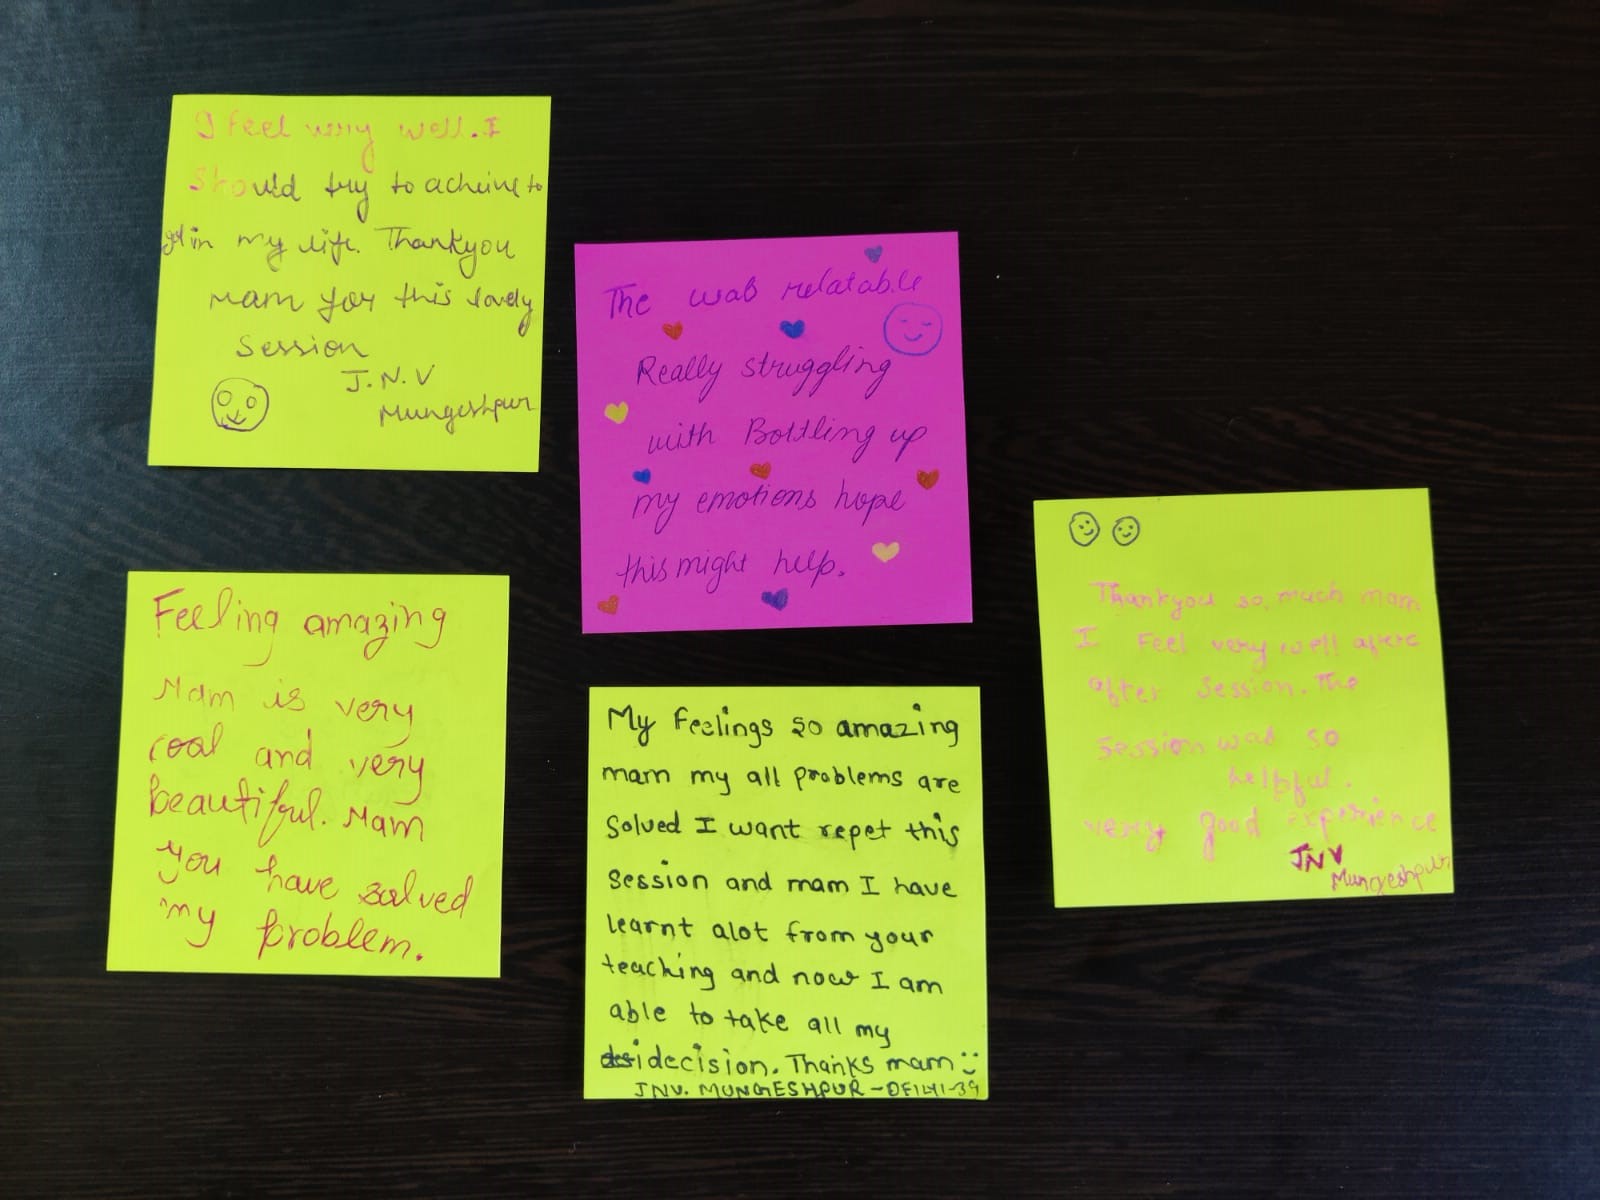 I feel very well. I
Should try to acheive to
get in my life. Thankyou
mam for this lovely
session
J.N.V
Mungeshpur
The was relatable
Really struggling
with Bottling up
my emotions hope
this might help.
Feeling amazing
Mam is very
cool and very
beautiful. Mam
you have solved
my problem.
My Feelings so amazing
mam my all problems are
solved I want repet this
session and mam I have
learnt alot from your
teaching and now I am
able to take all my
decision. Thanks mam
JNV. MUNGESHPUR - DELHI-39
Thankyou so much mam
I Feel very well
after session. The
session was so
helpful.
very good experience
JNV
Mungeshpur